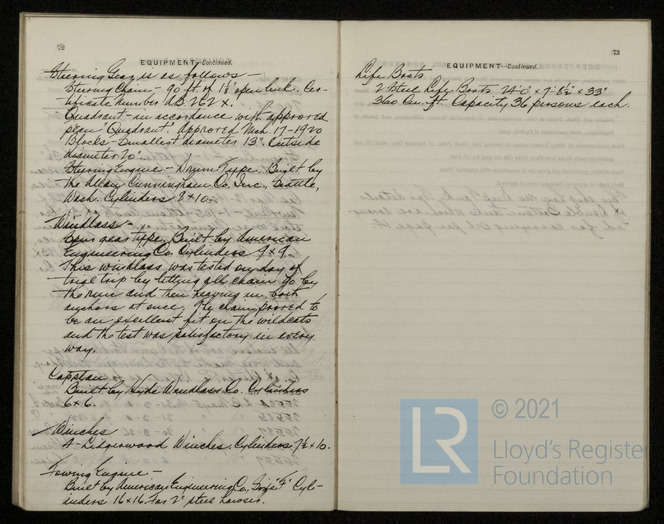 72
EQUIPMENT—Continued.
Steering Gear is as follows —
Steering Chain — 90 ft of 1⅛ open link. Cer-
tificate number
Quadrant — in accordance with approved
plan "Quadrant" approved Mch 17-1920
Blocks — Smallest diameter 13". Outside
diameter 20".
Steering Engine — Drum Type. Built by
the Allan Cunningham Co. Inc. Seattle,
Wash. Cylinders 8 x 10.
Windlass —
Spur gear type. Built by American
Engineering Co. Cylinders 9 x 9.
This windlass was tested on day of
trial trip by letting all chain go by
the run and then heaving in both
anchors at once. The chain proved to
be an excellent fit on the wildcats
and the test was satisfactory in every
way.
Capstan
Built by Hyde Windlass Co. Cylinders
6 x 6.
Winches
4 - Lidgerwood Winches. Cylinders 7½ x 10.
Towing Engine —
Built by American Engineering Co. Size "F" Cyl-
inders 16 x 16. For 2" steel hawser.
73
EQUIPMENT—Continued.
Life Boats
2 Steel Life Boats 24.0 x 7.1½ x 33"
360 cu. ft. Capacity 36 persons each.
LR
© 2021
Lloyd's Register
Foundation